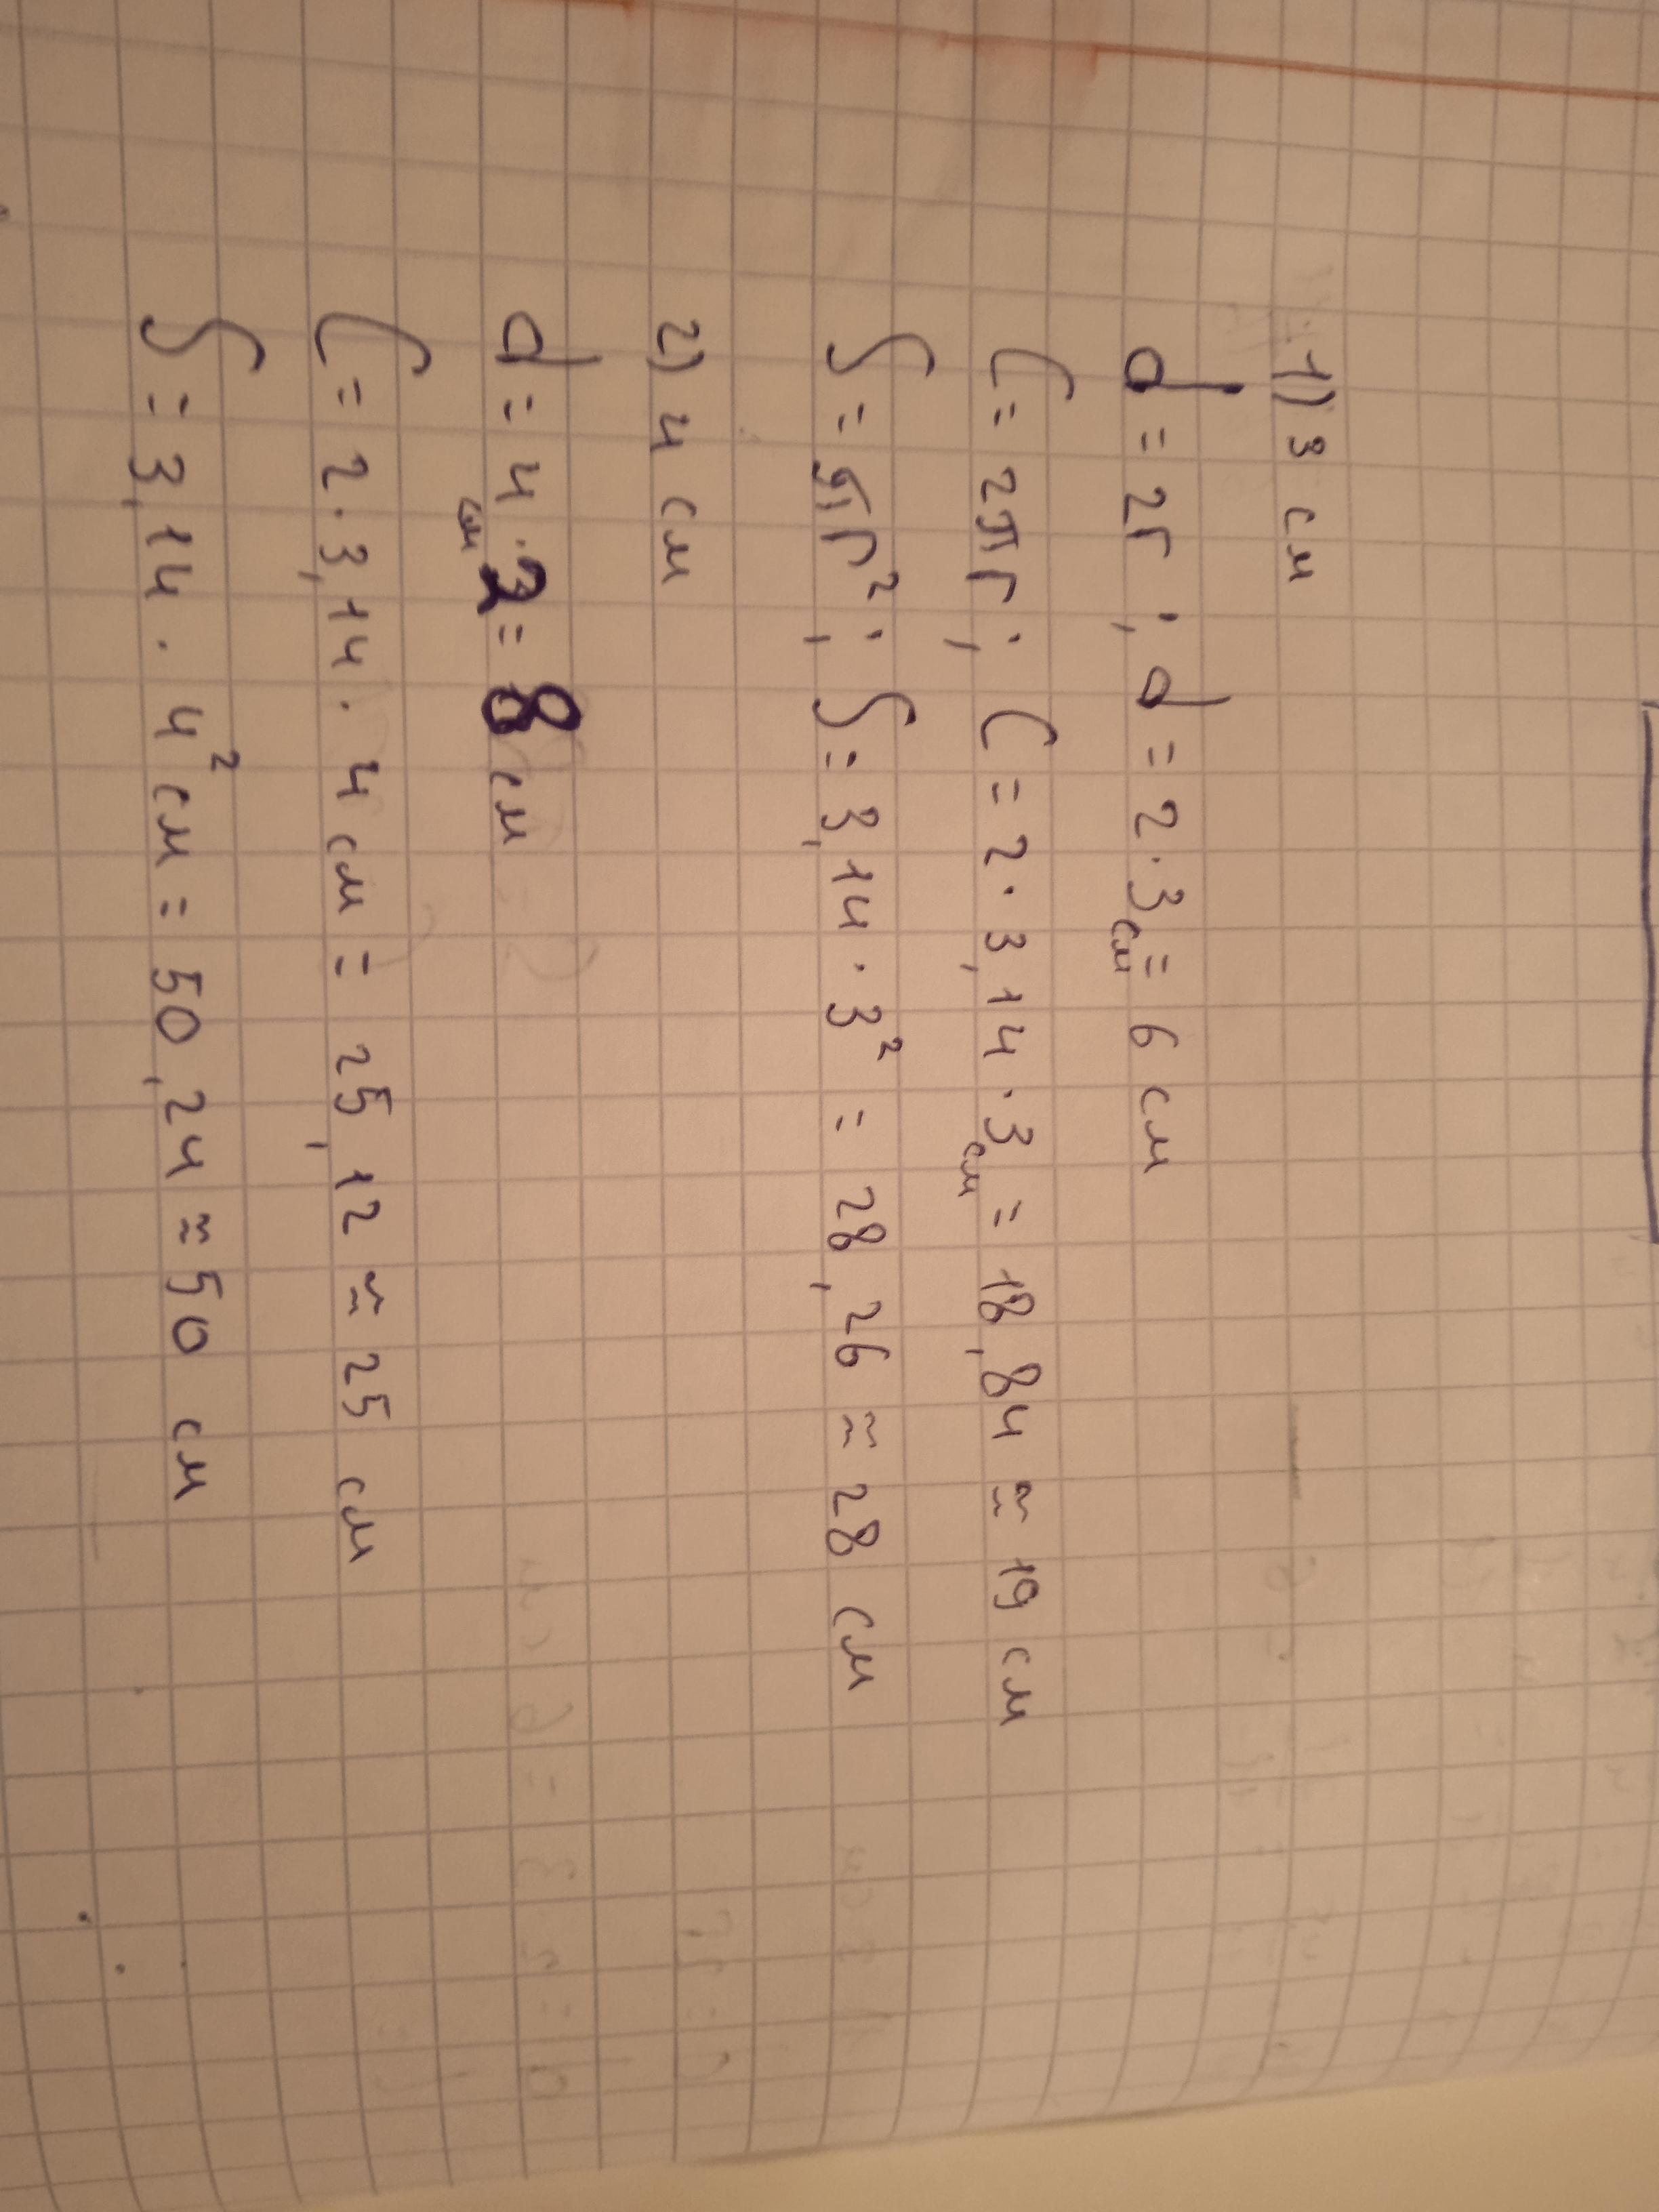 1) 3 см
d = 2r ; d = 2 · 3 см = 6 см
C = 2πr ; C = 2 · 3,14 · 3 см = 18,84 ≈ 19 см
S = πr² ; S = 3,14 · 3² = 28,26 ≈ 28 см
2) 4 см
d = 4 см · 2 = 8 см
C = 2 · 3,14 · 4 см = 25,12 ≈ 25 см
S = 3,14 · 4² см = 50,24 ≈ 50 см